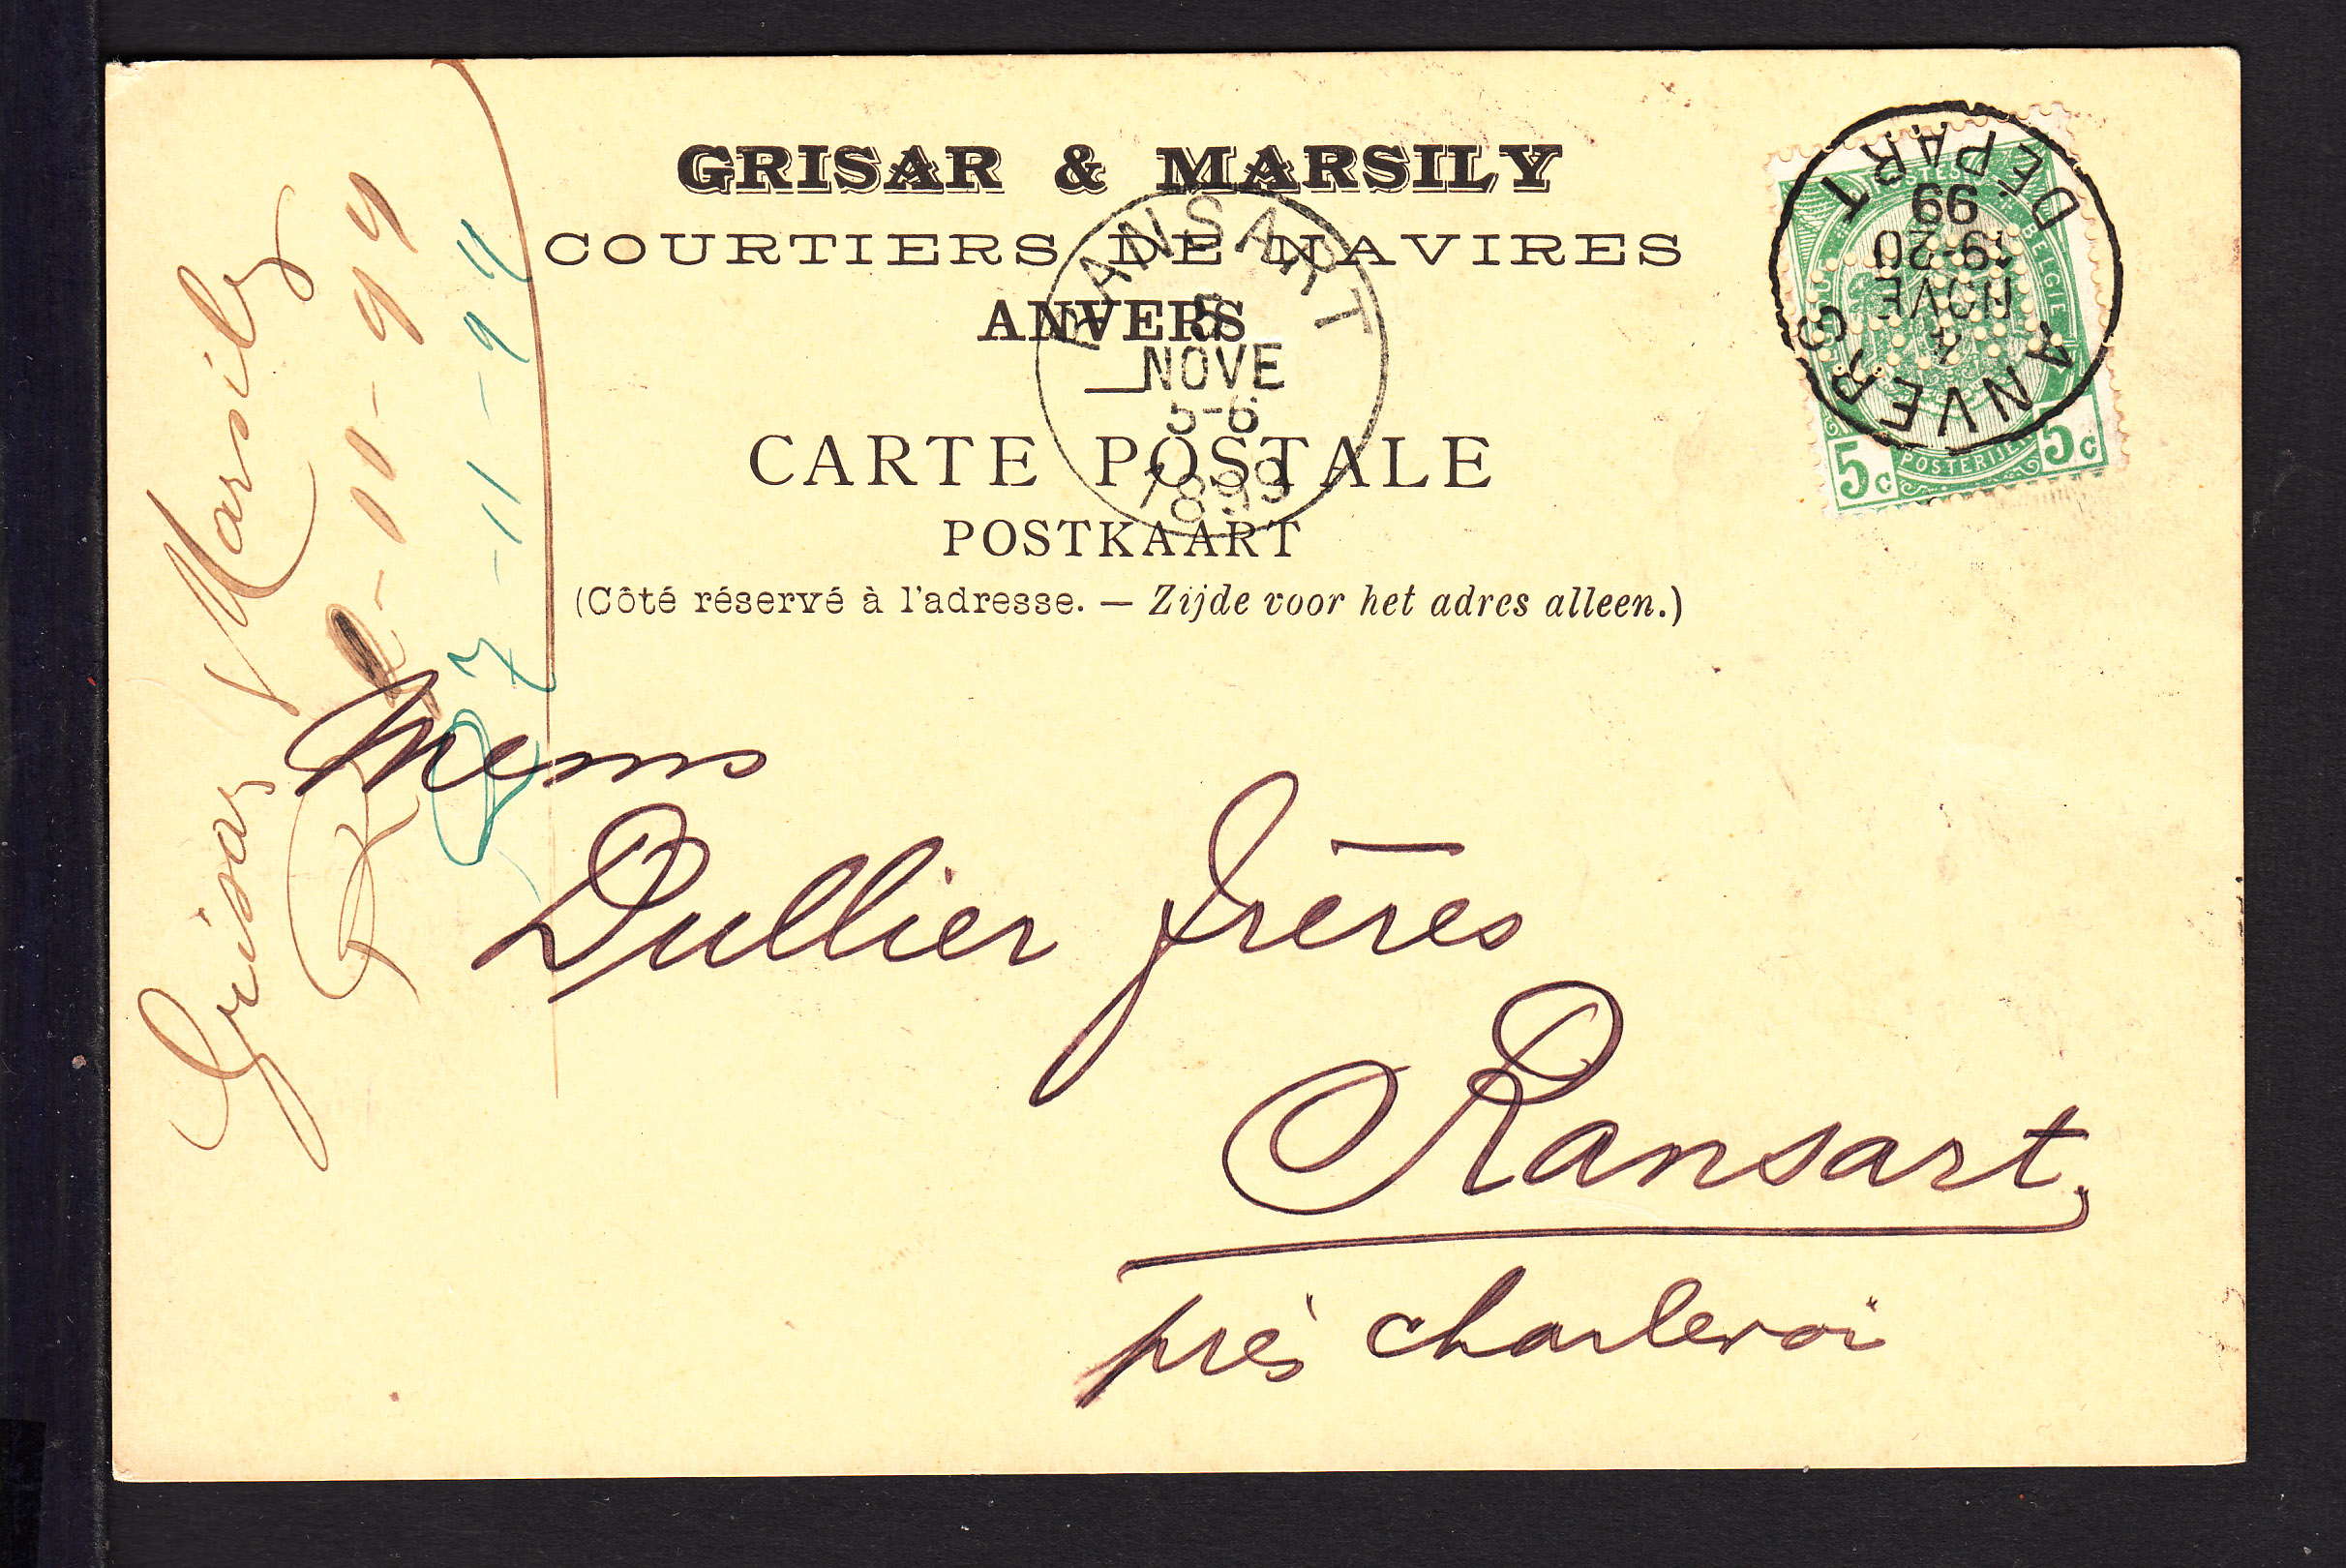 GRISAR & MARSILY
COURTIERS DE NAVIRES
ANVERS
CARTE POSTALE
POSTKAART
(Côté réservé à l'adresse. — Zijde voor het adres alleen.)
RANSART
5
NOVE
5-6
1899
ANVERS
4
NOVE
19-20
99
DÉPART
5c
POSTERIJEN
5c
BELGIE
Grisar Marsily
-11-99
7-11-99
Dullier frères
Ransart,
près Charleroi